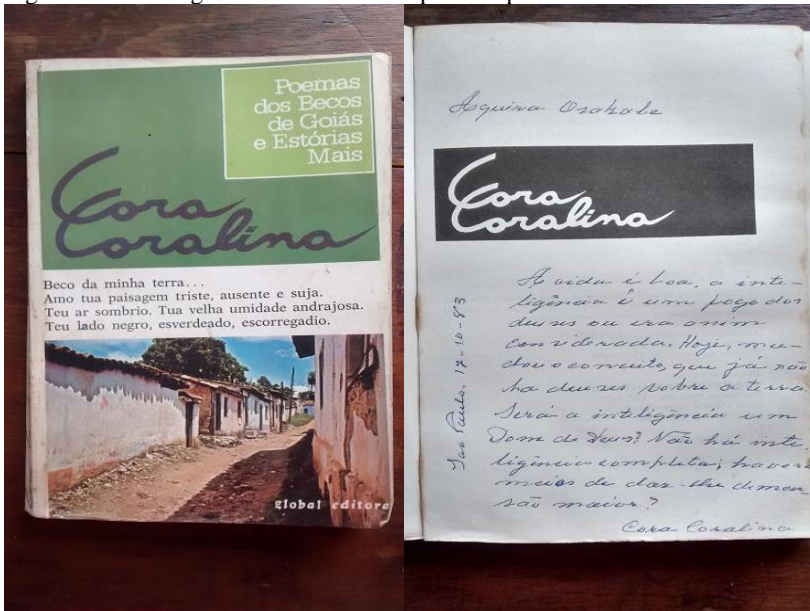 Poemas
dos Becos
de Goiás
e Estórias
Mais
Cora
Coralina
Beco da minha terra...
Amo tua paisagem triste, ausente e suja.
Teu ar sombrio. Tua velha umidade andrajosa.
Teu lado negro, esverdeado, escorregadio.
global editora
Aquira Osakabe
Cora
Coralina
A vida é boa, a inte-
ligência é um jogo dos
deuses ou era assim
considerada. Hoje, mu-
dou o conceito, que já não
ha deuses sobre a terra
Será a inteligência um
Dom de Deus? Não há inte
ligência completa; haver
meios de dar-lhe dimen
são maior?
Cora Coralina
Sao Paulo. 17-10-83